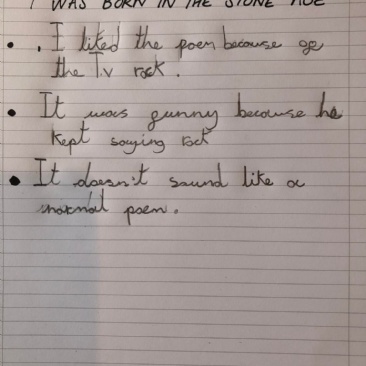 I WAS BORN IN THE STONE AGE
• . I liked the poem because of
the T.v rock.
• It was funny because he
kept saying rock
• It doesn't sound like a
normal poem.